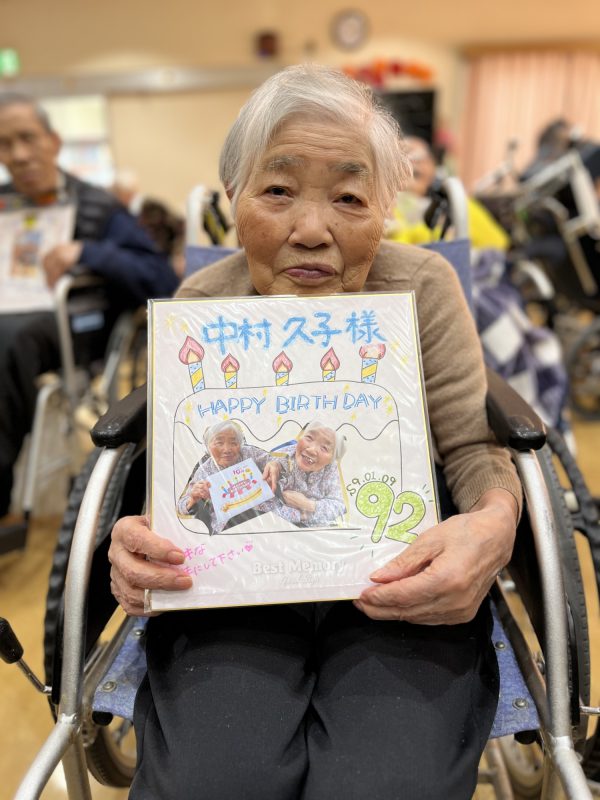 中村 久子 様
HAPPY BIRTHDAY
S9.01.09
92
にして下さい
Best Memory